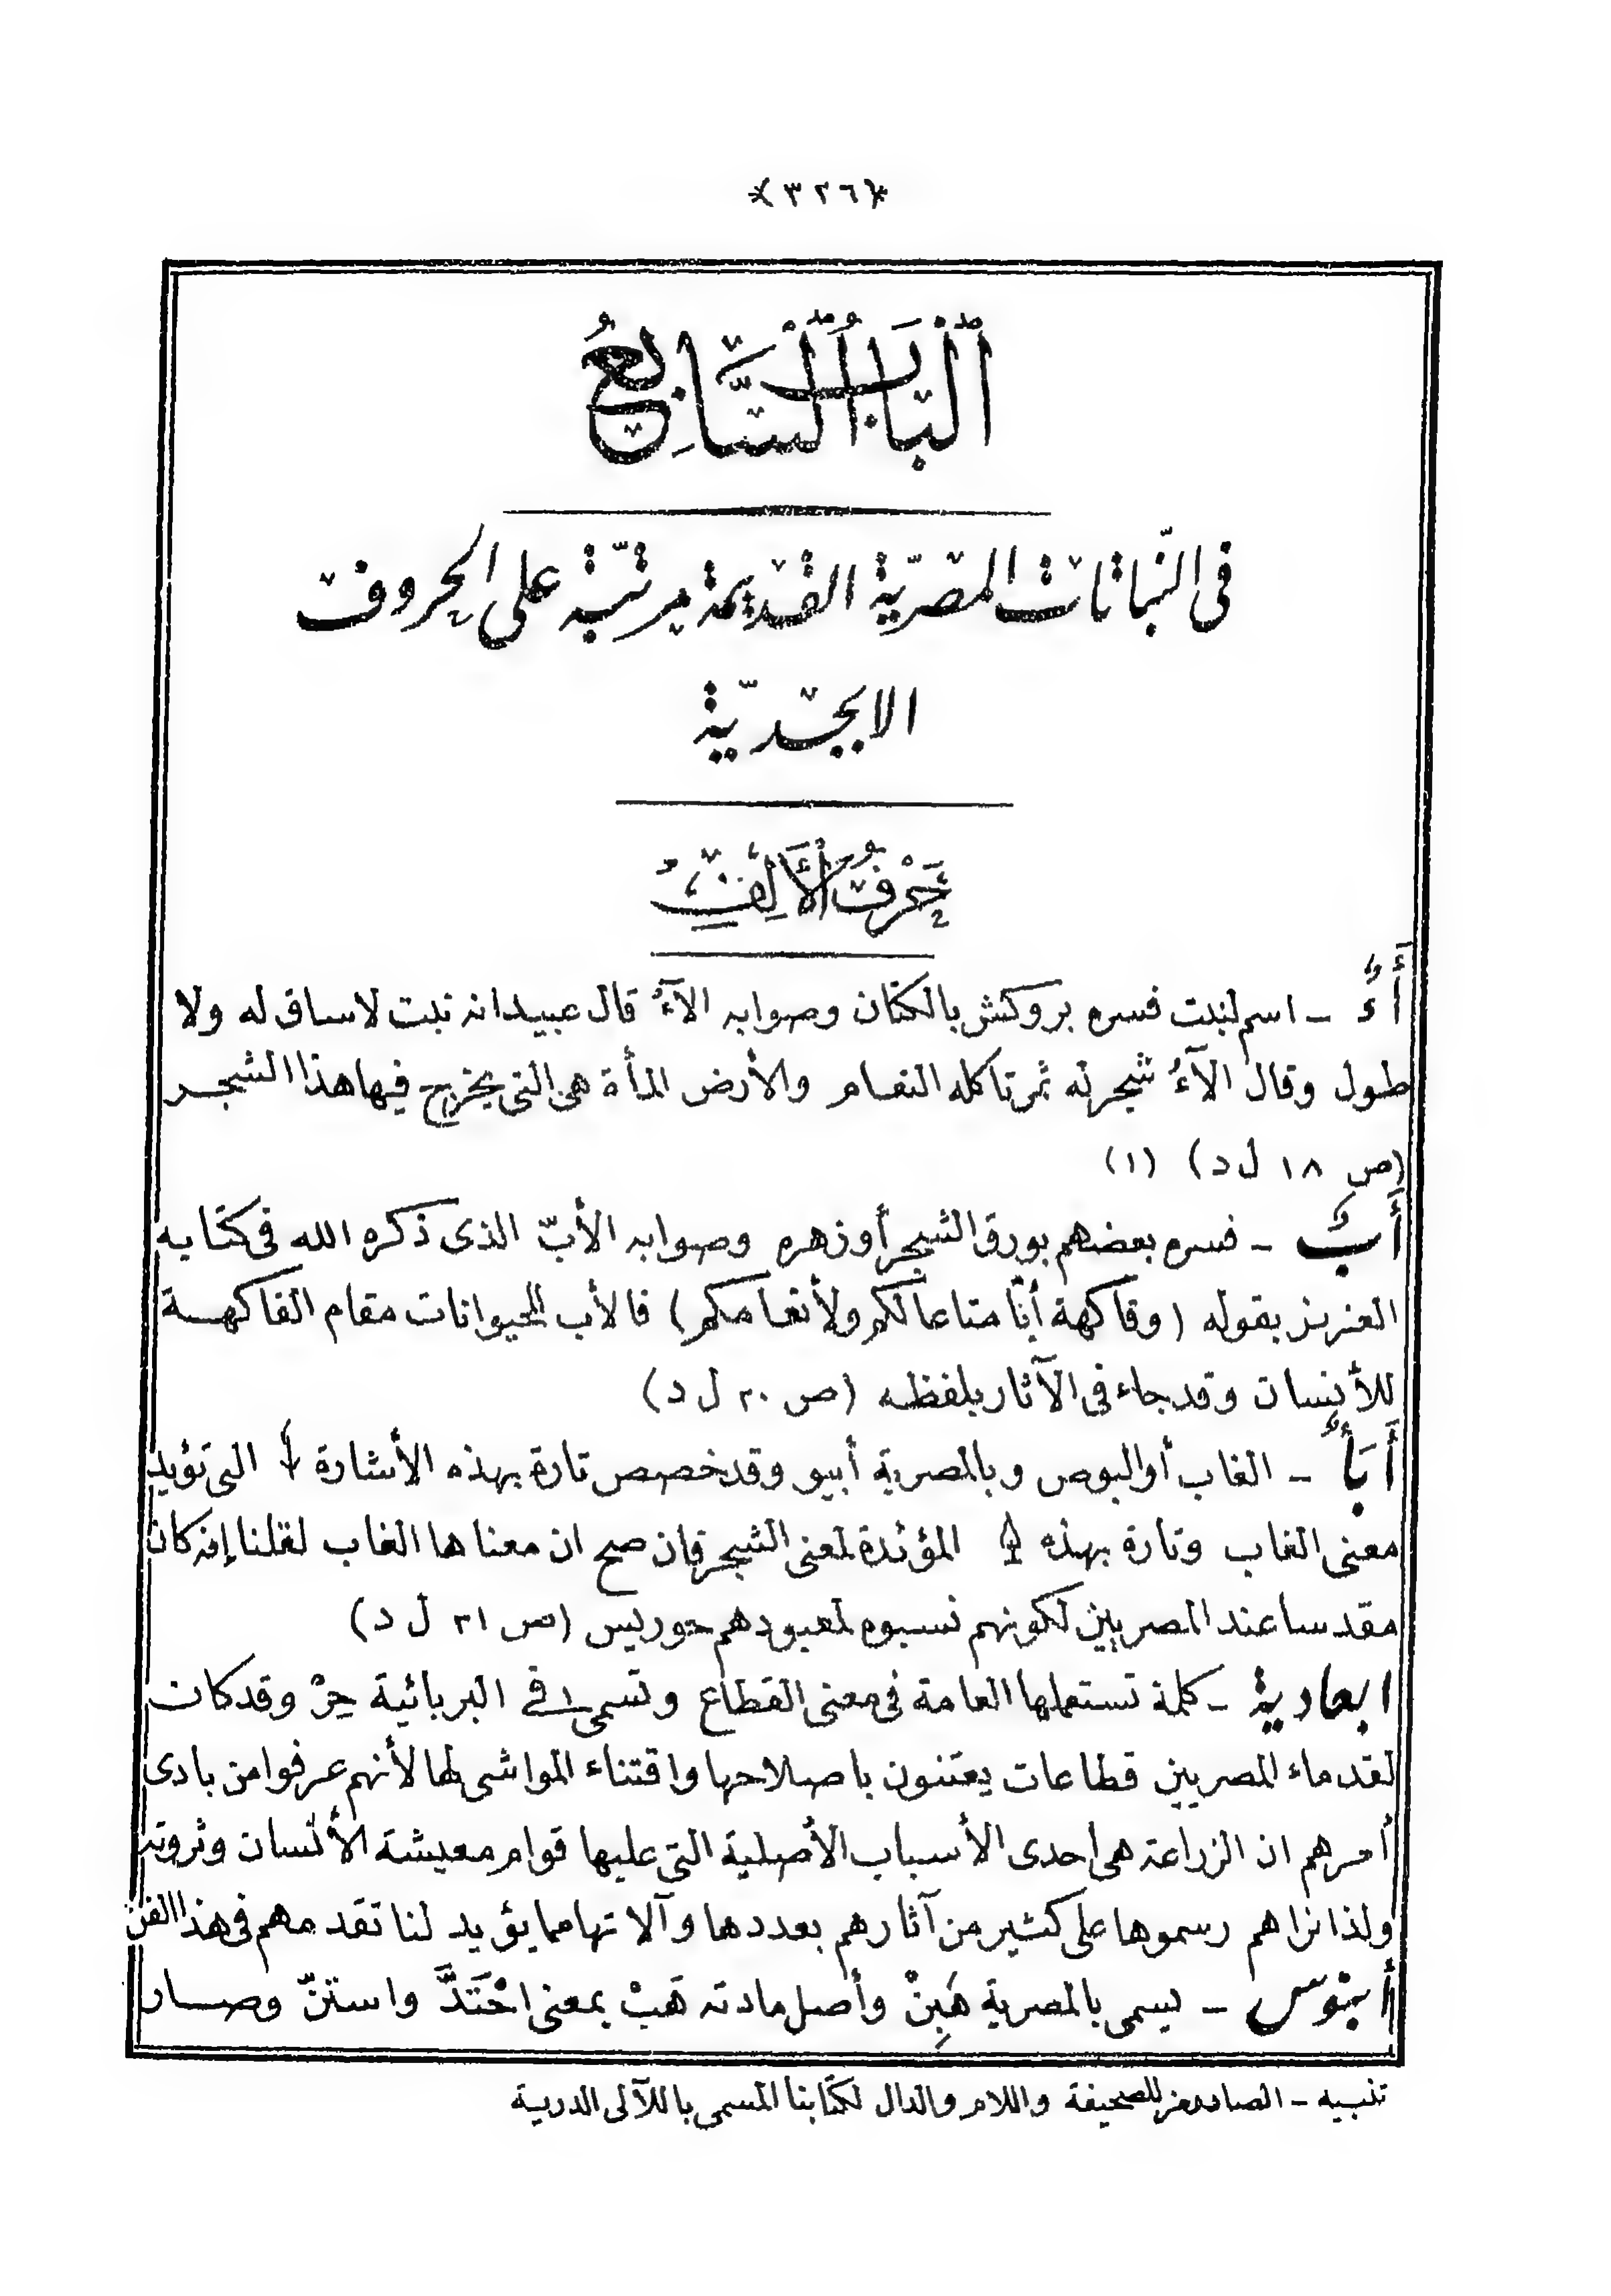 ﴿٣٢٦﴾
اَلْبَابُ السَّابِعُ
فى النّباتات المصريّة القديمة مرتبّة على الحروف
الابجديّة
حَرْفُ الْأَلِفِ
أَءُ – اسم لنبت فسره بروكش بالكتان وصوابه الآءُ قال عبيد انه نبت لاساق له ولا
طول وقال الآءُ شجر له ثمر تاكله النعام والأرض المأة هى التى يخرج فيها هذا الشجر
(ص ١٨ ل د) (١)
أَبُ – فسره بعضهم بورق الشجر أو زهره وصوابه الأبّ الذى ذكره الله فى كتابه
العزيز بقوله (وفاكهة أبّا متاعا لكم ولأنعامكم) فالأب للحيوانات مقام الفاكهة
للأنسان وقد جاء فى الآثار بلفظه (ص ٢٠ ل د)
أَبَأُ – الغاب أو البوص وبالمصرية أبيو وقد خصص تارة بهذه الأشارة التى تؤيد
معنى الغاب وتارة بهذه المؤيدة لمعنى الشجر فان صح ان معناها الغاب لقلنا إنه كان
مقدسا عند المصريين لكونهم نسبوه لمعبودهم حوريس (ص ٢١ ل د)
ابعادية – كلمة تستعملها العامة فى معنى القطاع وتسمى فى البربائية حِرْ وقد كان
لقدماء المصريين قطاعات يعتنون باصلاحها واقتناء المواشى لها لأنهم عرفوا من بادى
أمرهم ان الزراعة هى احدى الأسباب الأصلية التى عليها قوام معيشة الأنسان وثروته
ولذا نراهم رسموها على كثير من آثارهم بعددها وآلاتها مما يؤيد لنا تقدمهم فى هذا الفن
أبنوس – يسمى بالمصرية هَبِنْ وأصل مادته هَبْ بمعنى احْتَدَّ واستنّ وصار
تنبيه – الصاد رمز للصحيفة واللام والدال لكتابنا المسمى باللآلى الدرية